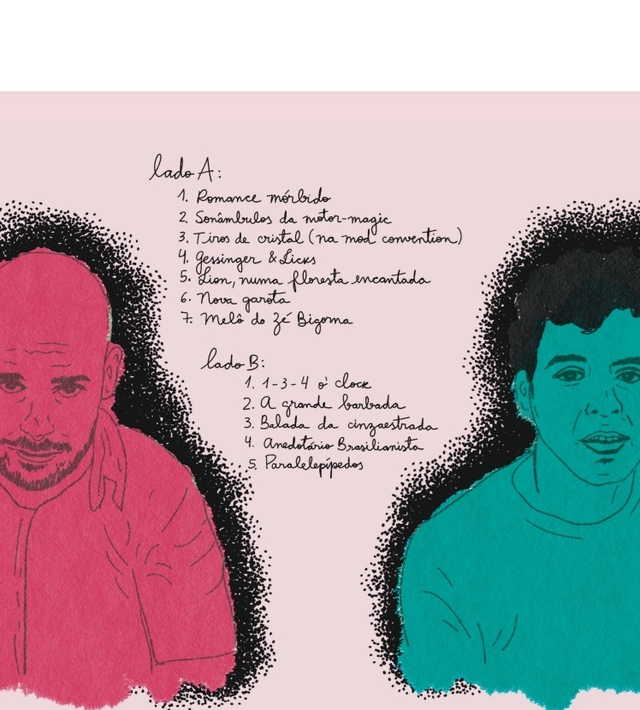 lado A:
1. Romance mórbido
2. Sonâmbulos da motor-magic
3. Tiros de cristal (na mod convention)
4. Gessinger & Licks
5. Lion, numa floresta encantada
6. Nova garota
7. Melô do Zé Bigorna
lado B:
1. 1-3-4 o' clock
2. A grande barbada
3. Balada da cinzaestrada
4. Anedotário Brasilianista
5. Paralelepípedos